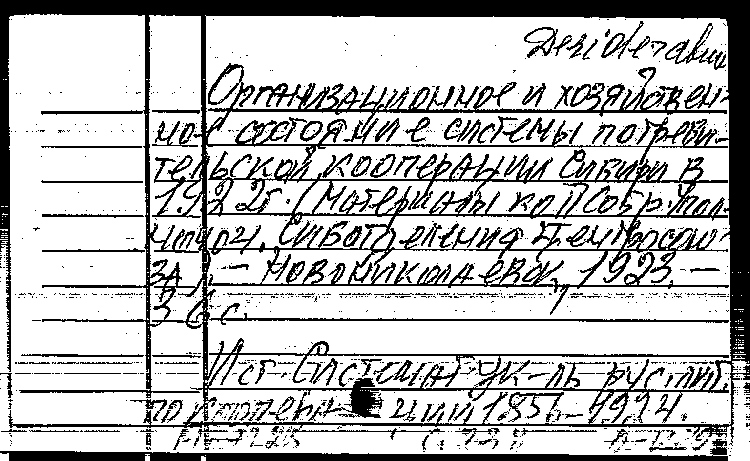 Desiderabilia
Организационное и хозяйствен-
ное состояние системы потреби-
тельской кооперации Сибири в
1922г. (Материалы ко II Собр. упол-
номоч. Сиботделения Центросою-
за). – Новониколаевск, 1923. –
36 с.
Ист. Системат. ук-ль рус. лит.
по кооперации 1856–1924.